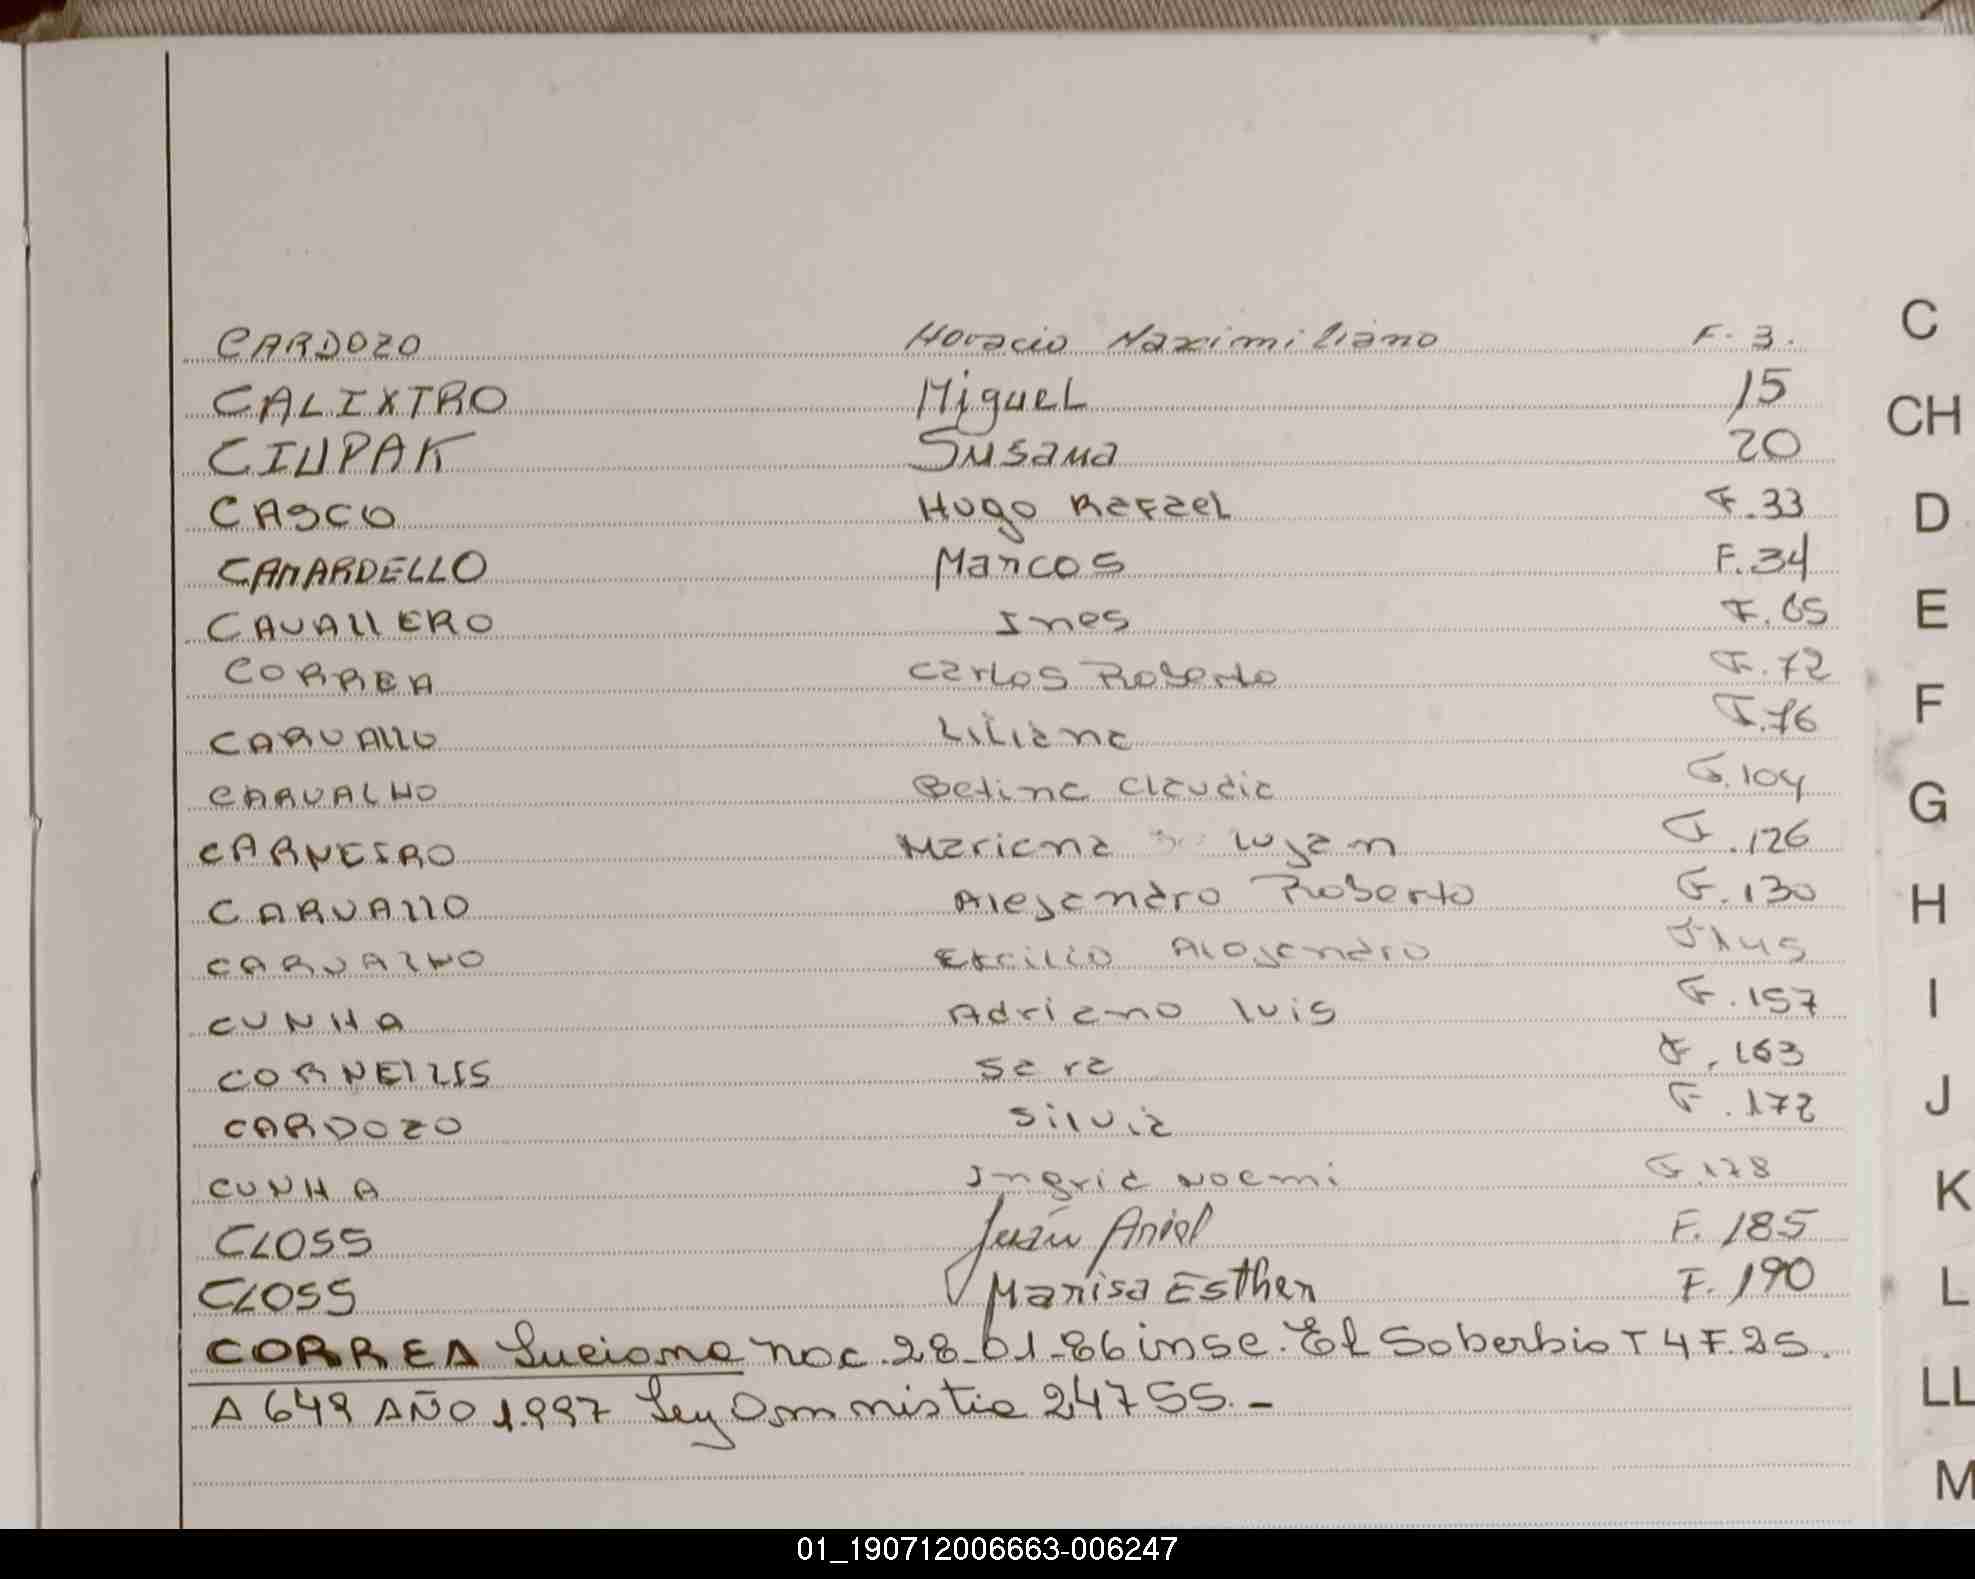 CARDOZO Horacio Maximiliano F. 3.
CALIXTRO Miguel 15
CIUPAK Susana 20
CASCO Hugo Rafael F.33
CAMARDELLO Marcos F.34
CAVALLERO Ines F.65
CORREA Carlos Roberto F.72
CARVALLO Liliana F.76
CARVALHO Betina Claudia F.104
CARNEIRO Mariana Lujan F.126
CARVALLO Alejandro Roberto F.130
CARVALHO Alejandro F.145
CUNHA Adriano Luis F.157
CORNELLIS Sara F.163
CARDOZO Silvia F.172
CUNHA Ingrid Noemi F.178
CLOSS Juan Ariel F. 185
CLOSS Marisa Esther F. 190
CORREA Luciana nac. 28-01-86 insc. El Soberbio T 4 F. 25.
A 649 AÑO 1.997 Ley Omnistia 24755.-
C
CH
D
E
F
G
H
I
J
K
L
LL
M
01_190712006663-006247